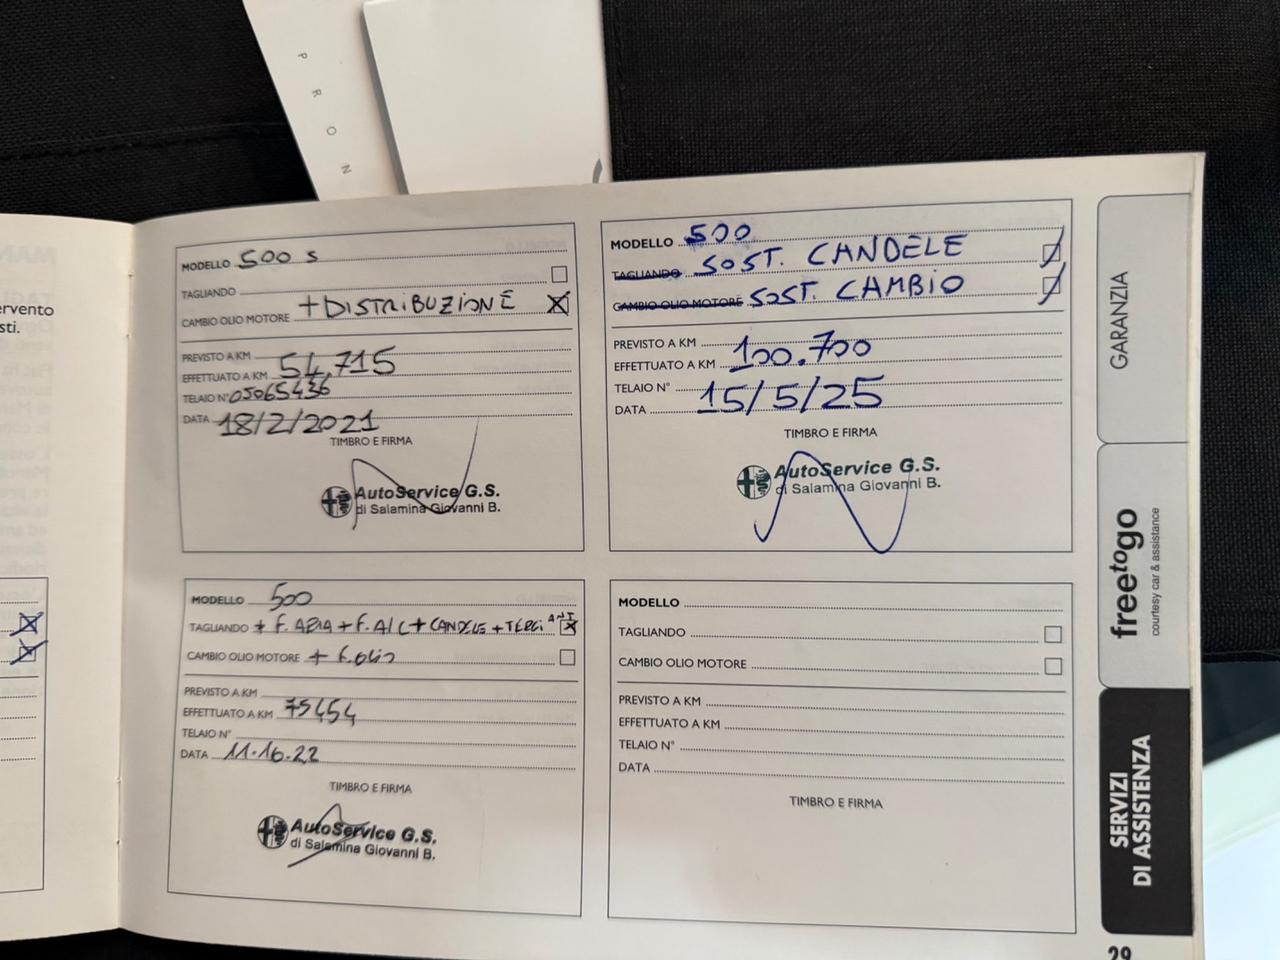 PRON
ervento
sti.
MODELLO 500 S
TAGLIANDO
CAMBIO OLIO MOTORE + DISTRIBUZIONE
PREVISTO A KM
EFFETTUATO A KM 54.715
TELAIO N° 05065436
DATA 18/2/2021
TIMBRO E FIRMA
AutoService G.S.
di Salamina Giovanni B.
MODELLO 500
TAGLIANDO SOST. CANDELE
CAMBIO OLIO MOTORE SOST. CAMBIO
PREVISTO A KM
EFFETTUATO A KM 100.700
TELAIO N°
DATA 15/5/25
TIMBRO E FIRMA
AutoService G.S.
di Salamina Giovanni B.
MODELLO 500
TAGLIANDO + F. ARIA + F. A/C + CANDELE + TERGI ANT
CAMBIO OLIO MOTORE + F. OLIO
PREVISTO A KM
EFFETTUATO A KM 75454
TELAIO N°
DATA 11.16.22
TIMBRO E FIRMA
AutoService G.S.
di Salamina Giovanni B.
MODELLO
TAGLIANDO
CAMBIO OLIO MOTORE
PREVISTO A KM
EFFETTUATO A KM
TELAIO N°
DATA
TIMBRO E FIRMA
GARANZIA
freetogo
courtesy car & assistance
SERVIZI
DI ASSISTENZA
29